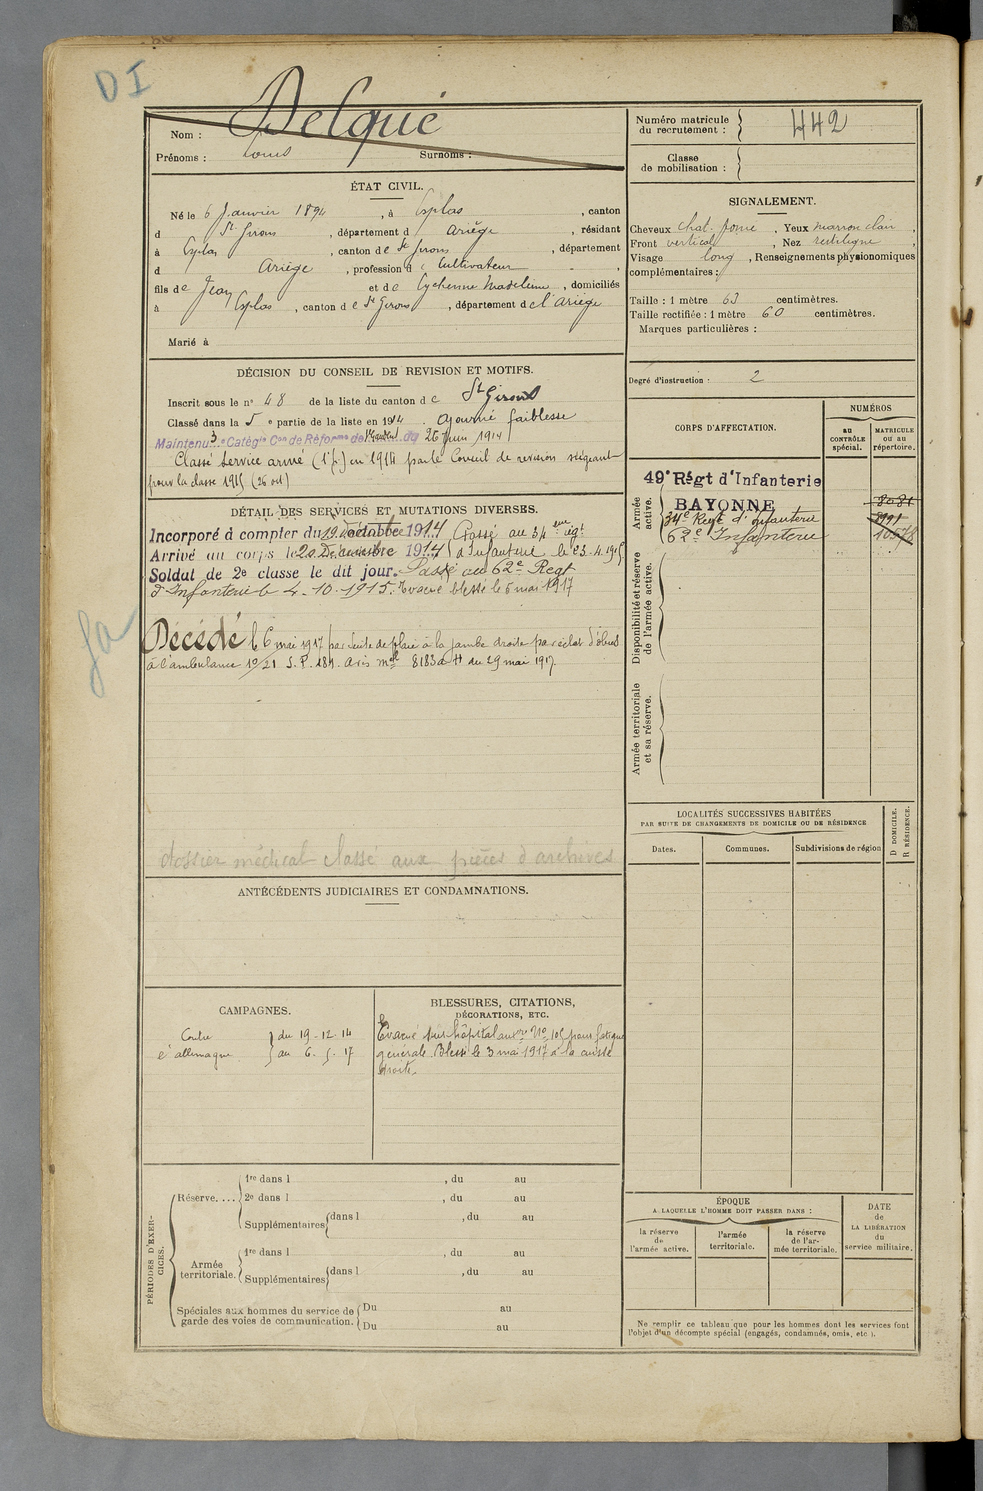 DI
Nom : Delqué
Prénoms : Louis Surnoms :
Numéro matricule du recrutement : 442
Classe de mobilisation :
ÉTAT CIVIL.
Né le 6 Janvier 1894, à Esplas, canton
d St. Girons, département d Ariège, résidant
à Esplas, canton de St Girons, département
d Ariège, profession d e Cultivateur,
fils de Jean et de Eycheinne Madeleine, domiciliés
à Esplas, canton de St Girons, département de l'Ariège
Marié à
SIGNALEMENT.
Cheveux chat. fonc, Yeux marron clair,
Front vertical, Nez rectiligne,
Visage long, Renseignements physionomiques
complémentaires :
Taille : 1 mètre 63 centimètres.
Taille rectifiée : 1 mètre 60 centimètres.
Marques particulières :
Degré d'instruction : 2
DÉCISION DU CONSEIL DE REVISION ET MOTIFS.
Inscrit sous le n° 48 de la liste du canton de St Girons
Classé dans la 5e partie de la liste en 1914. Ajourné faiblesse
Maintenu 3e Catégie Con de Réforme de du 26 Juin 1914
Classé Service armé (1e p.) en 1914 par le Conseil de revision siégeant
pour la classe 1915 (26 oct)
DÉTAIL DES SERVICES ET MUTATIONS DIVERSES.
Incorporé à compter du 19 Décembre 1914 Passé au 34ème régt
Arrivé au corps le 20 Décembre 1914 d'Infanterie le 23.4.1915
Soldat de 2e classe le dit jour. Passé au 62e Regt
d'Infanterie le 4.10.1915. Evacué blessé le 5 mai 1917
Décédé le 6 mai 1917 par suite de plaie à la jambe droite par éclat d'obus
à l'ambulance 10/21 S.P. 184. Avis mel 8183 du 29 mai 1917.
dossier médical classé aux pièces d'archives
CORPS D'AFFECTATION.
NUMÉROS
au CONTRÔLE spécial.
MATRICULE ou au répertoire.
Armée active.
49e Régt d'Infanterie
BAYONNE 8081
34e Regt d'Infanterie
62e Infanterie 10578
Disponibilité et réserve de l'armée active.
Armée territoriale et sa réserve.
LOCALITÉS SUCCESSIVES HABITÉES
PAR SUITE DE CHANGEMENTS DE DOMICILE OU DE RÉSIDENCE
Dates. Communes. Subdivisions de région
D DOMICILE.
R RÉSIDENCE.
ANTÉCÉDENTS JUDICIAIRES ET CONDAMNATIONS.
CAMPAGNES.
Contre du 19-12-14
l'allemagne au 6-5-17
BLESSURES, CITATIONS,
DÉCORATIONS, ETC.
Evacué sur hôpital No 105 pour fatigue
générale. Blessé le 3 mai 1917 à la cuisse
droite
PÉRIODES D'EXERCICES.
Réserve....
1re dans l , du au
2e dans l , du au
Supplémentaires dans l , du au
Armée territoriale.
1re dans l , du au
Supplémentaires dans l , du au
Spéciales aux hommes du service de Du au
garde des voies de communication. Du au
ÉPOQUE
A LAQUELLE L'HOMME DOIT PASSER DANS :
la réserve de l'armée active.
l'armée territoriale.
la réserve de l'armée territoriale.
DATE de LA LIBÉRATION du service militaire.
Ne remplir ce tableau que pour les hommes dont les services font
l'objet d'un décompte spécial (engagés, condamnés, omis, etc.).